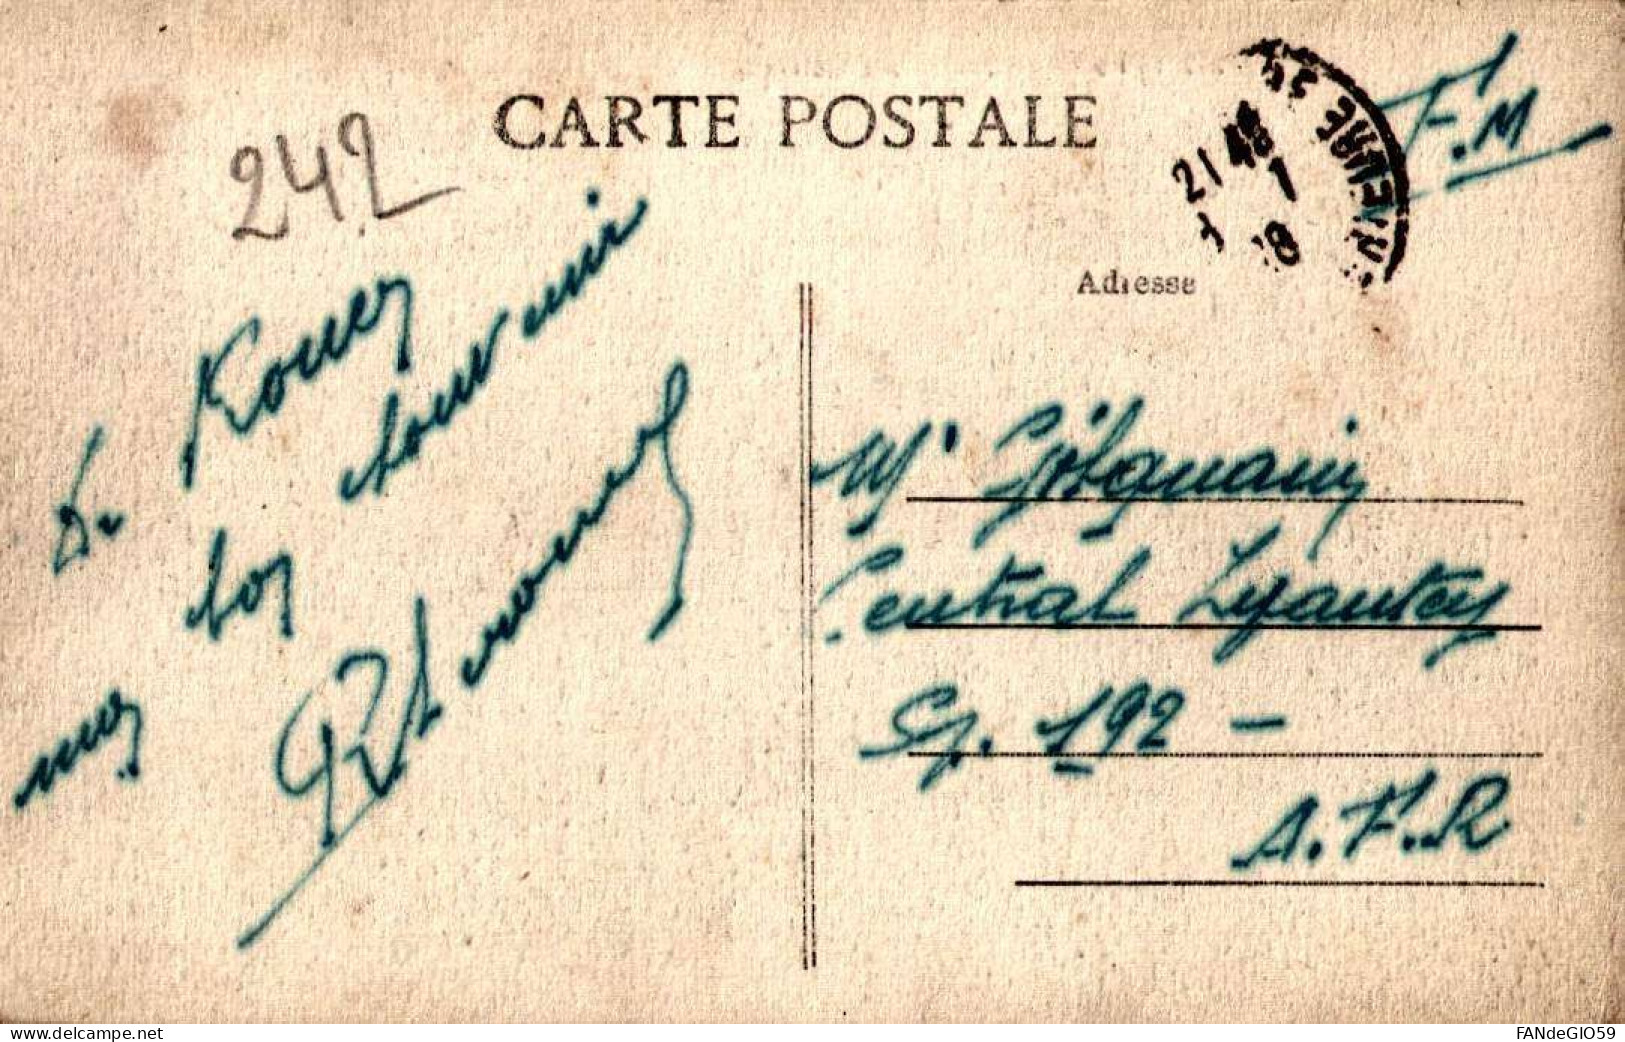 CARTE POSTALE
242
F.M
21 48
1
Adresse
De Rouen
mes bons souvenirs
Mr
Central Lyautey
Sp. 192 -
A.F.R
www.delcampe.net
FANdeGIO59